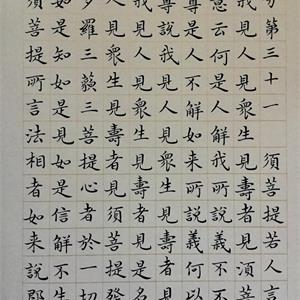 分第三十一　須菩提若人言
我見人見眾生見壽者見湏菩
意云何是人解我所說義不不
尊是人不解如來所說義何以
尊說我見人見眾生見壽者見
我見人見眾生見壽者見是名
人見眾生見壽者見須菩提發
多羅三藐三菩提心者於一切
如是知如是見如是信解不生
須菩提所言法相者如來說即